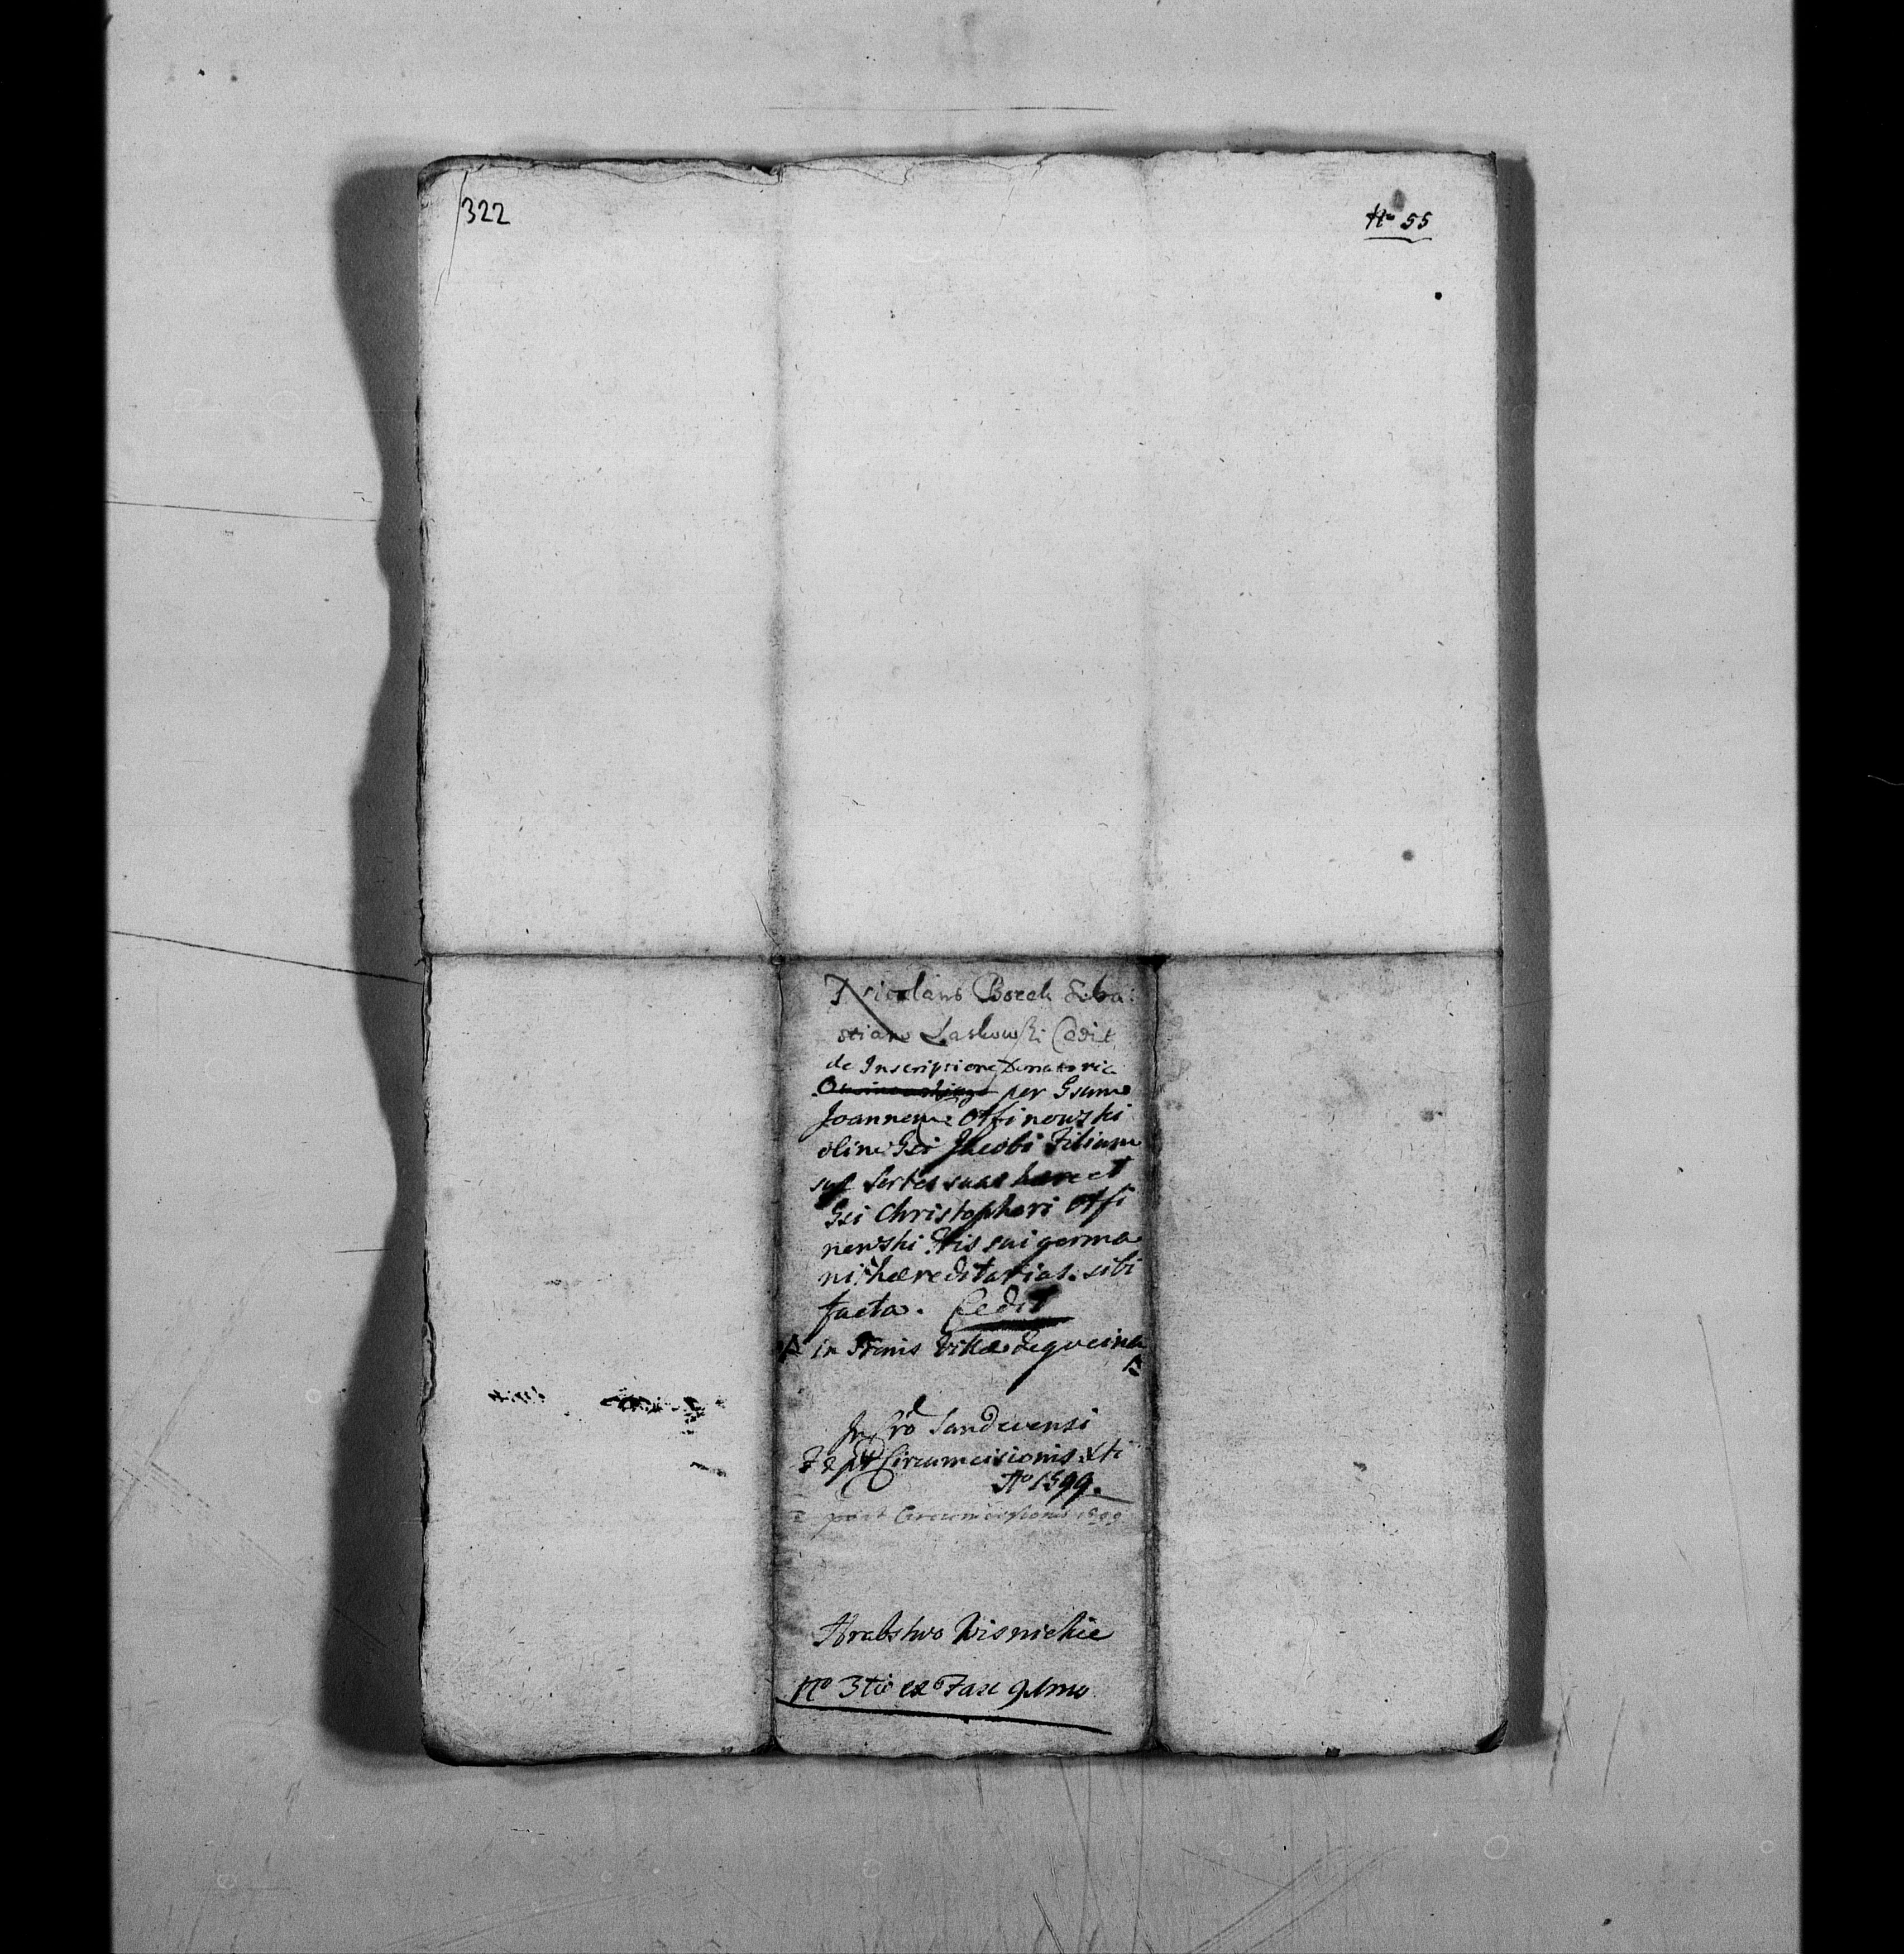 322
No 55
Nicolaus Borek Seba:
stiano Laskowski Cedit
de Inscriptione Donatoria
per Gsum
Joannem Ossinowski
olim Gsi Jacobi Filium
sup sortes suas hære et
Gsi Christophori Ossi
nowski Fris sui germa
ni hæreditarias. sibi
facta. Cedit
in Bonis Villæ
In Cro Sandecensi
F 2 pt Circumcisionis Xti
Ao 1599.
post Circumcisionis 1599
Hrabstwo Wisnickie
No 3tio ex Fasc 91mo